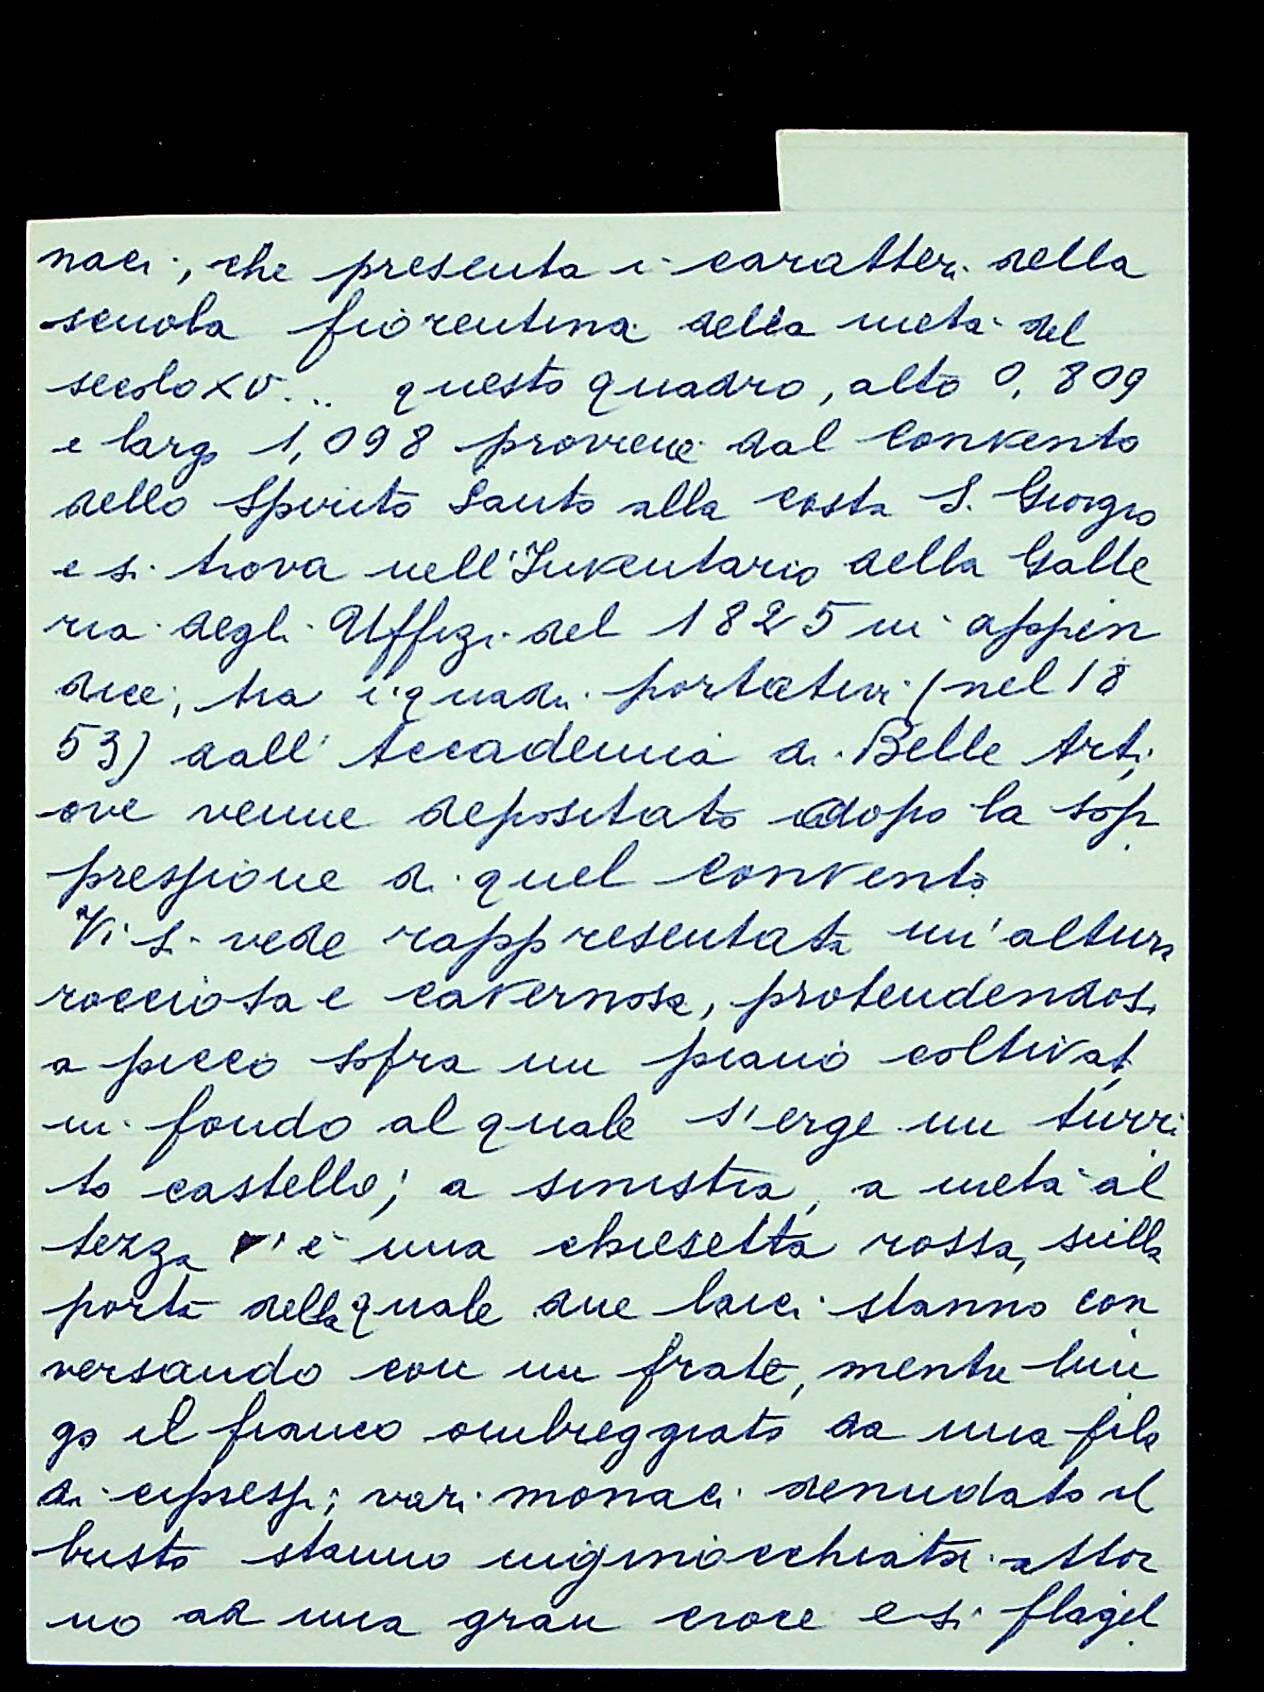 naci, che presenta i caratteri della
scuola fiorentina della metà del
secolo XV... questo quadro, alto 0,809
e largo 1,098 proviene dal Convento
dello Spirito Santo alla costa S. Giorgio
e si trova nell'Inventario della Galle
ria degli Uffizi del 1825 in appen
dice, tra i quadri portativi (nel 18
53) dall'Accademia di Belle Arti,
ove venne depositato dopo la sop
pressione di quel Convento
Vi si vede rappresentata un'altura
rocciosa e cavernosa, protendendosi
a picco sopra un piano coltivat
in fondo al quale s'erge un turri
to castello; a sinistra, a metà al
tezza v'è una chiesetta rossa, sulla
porta della quale due laici stanno con
versando con un frate, mentre lun
go il fianco ombreggiato da una fila
di cipressi; vari monaci denudato il
busto stanno inginocchiati attor
no ad una gran croce e si flagel